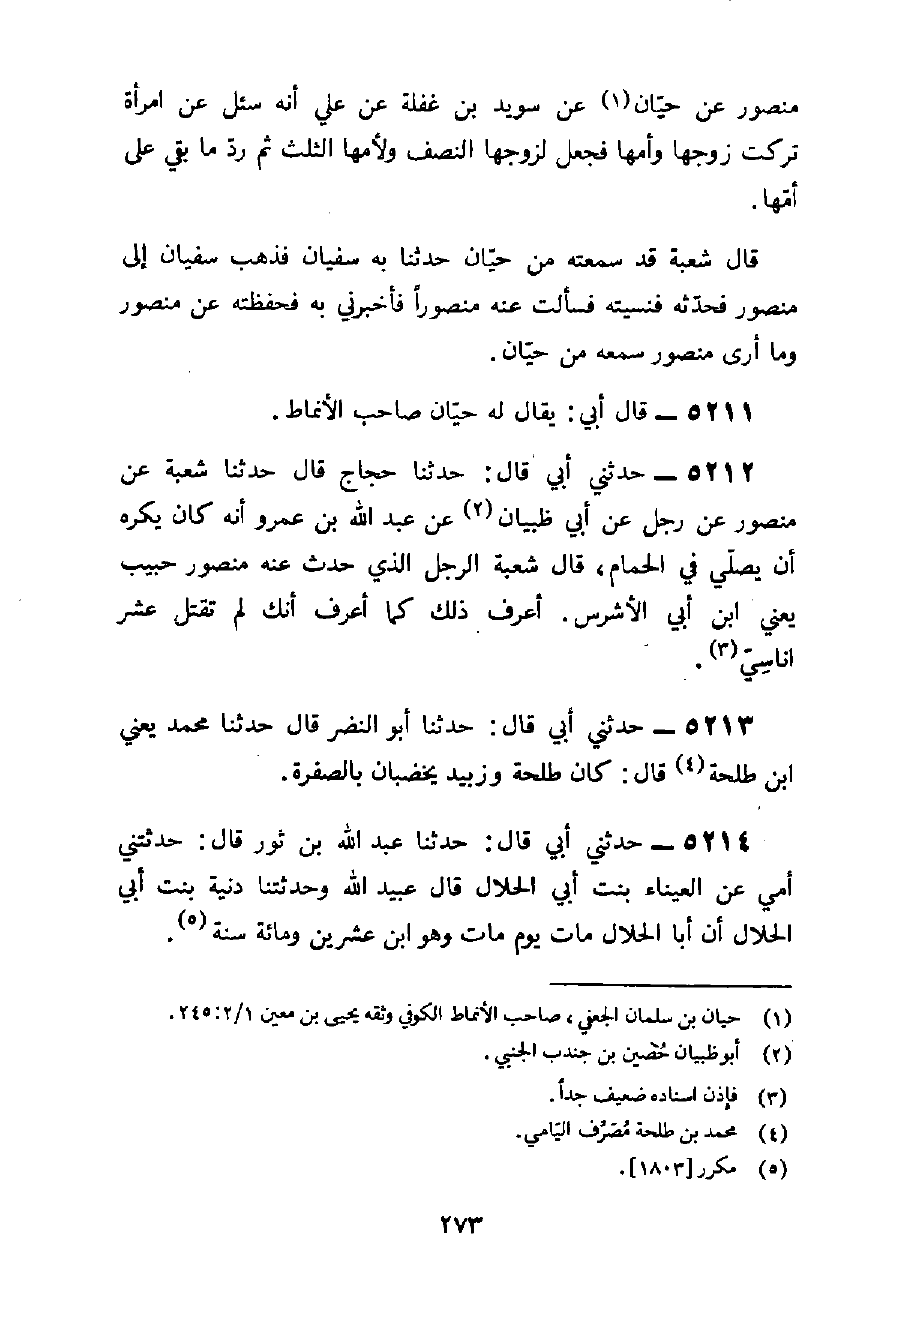 منصور عن حيّان(١) عن سويد بن غفلة عن علي أنه سئل عن امرأة
تركت زوجها وأمها فجعل لزوجها النصف ولأمها الثلث ثم ردّ ما بقي على
أمّها.
قال شعبة قد سمعته من حيّان حدثنا به سفيان فذهب سفيان إلى
منصور فحدّثه فنسيته فسألت عنه منصوراً فأخبرني به فحفظته عن منصور
وما أرى منصور سمعه من حيّان.
٥٢١١ ــ قال أبي: يقال له حيّان صاحب الأنماط.
٥٢١٢ ــ حدثني أبي قال: حدثنا حجاج قال حدثنا شعبة عن
منصور عن رجل عن أبي ظبيان(٢) عن عبد الله بن عمرو أنه كان يكره
أن يصلّي في الحمام، قال شعبة الرجل الذي حدث عنه منصور حبيب
يعني ابن أبي الأشرس. أعرف ذلك كما أعرف أنك لم تقتل عشر
اناسِيّ(٣).
٥٢١٣ ــ حدثني أبي قال: حدثنا أبو النضر قال حدثنا محمد يعني
ابن طلحة(٤) قال: كان طلحة وزبيد يخضبان بالصفرة.
٥٢١٤ ــ حدثني أبي قال: حدثنا عبد الله بن ثور قال: حدثتني
أمي عن العيناء بنت أبي الحلال قال عبيد الله وحدثتنا دنية بنت أبي
الحلال أن أبا الحلال مات يوم مات وهو ابن عشرين ومائة سنة(٥).
(١) حيان بن سلمان الجعفي، صاحب الأنماط الكوفي وثقه يحيى بن معين ٢٤٥:٢/١.
(٢) أبو ظبيان حُصَين بن جندب الجنبي.
(٣) فإذن اسناده ضعيف جداً.
(٤) محمد بن طلحة مُصَرِّف اليّامي.
(٥) مكرر [١٨٠٣].
٢٧٣